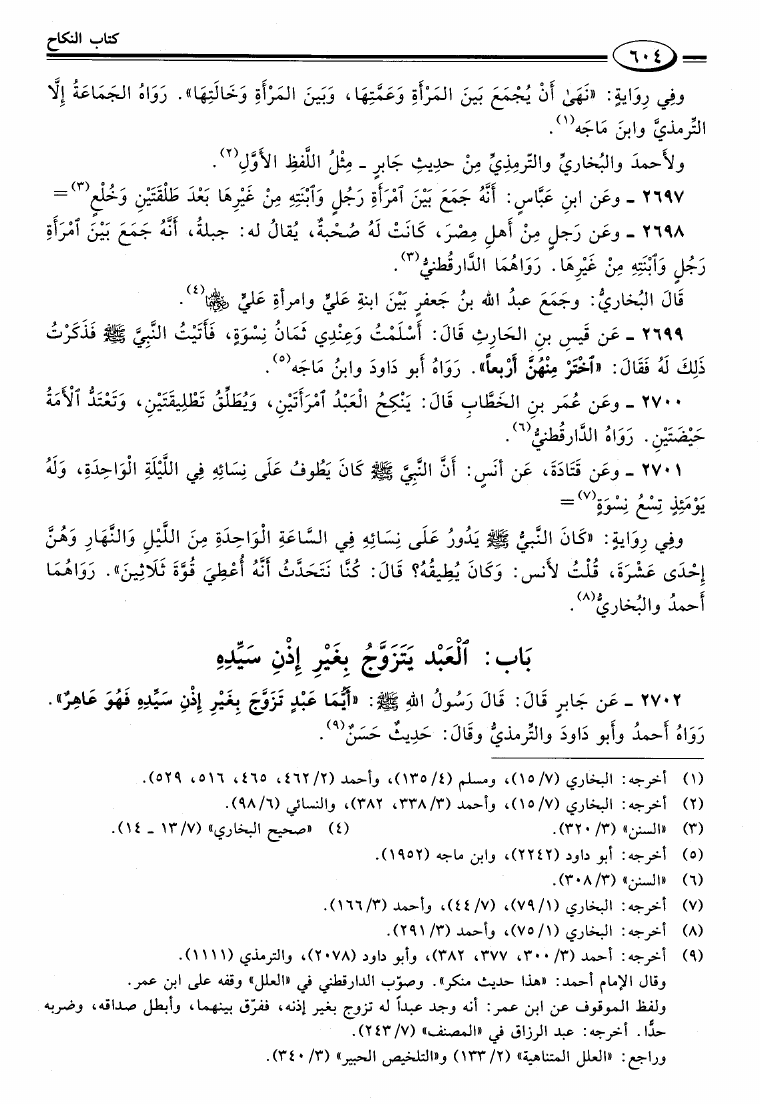 كتاب النكاح
٦٠٤
وفِي رِوَايَةٍ: «نَهَىٰ أَنْ يُجْمَعَ بَينَ المَرْأَةِ وَعَمَّتِهَا، وَبَينَ المَرْأَةِ وَخَالَتِهَا». رَوَاهُ الجَمَاعَةُ إِلَّا
التِّرمذيَّ وابنَ مَاجَه(١).
ولأحمدَ والبُخاريِّ والتِّرمِذِيِّ مِنْ حديثِ جَابرٍ ـ مِثْلُ اللَّفظِ الأوَّلِ(٢).
٢٦٩٧ ـ وعَن ابنِ عَبَّاسٍ: أنَّهُ جَمَعَ بَيْنَ ٱمْرَأَةِ رَجُلٍ وَٱبْنَتِهِ مِنْ غَيْرِهَا بَعْدَ طَلْقَتَيْنِ وَخُلْعٍ(٣)=
٢٦٩٨ ـ وعَن رَجلٍ مِنْ أَهلِ مِصْرَ، كَانَتْ لَهُ صُحْبَةٌ، يُقالُ له: جبلةُ، أَنَّهُ جَمَعَ بَيْنَ ٱمْرَأَةِ
رَجُلٍ وَٱبْنَتِهِ مِنْ غَيْرِهَا. رَوَاهُمَا الدَّارقطنيُّ(٣).
قَالَ البُخاريُّ: وجَمَعَ عبدُ الله بنُ جَعفرٍ بَيْنَ ابنةِ عَليٍّ وامرأةِ عَليٍّ ﵃(٤).
٢٦٩٩ ـ عَن قَيسِ بنِ الحَارثِ قَالَ: أَسْلَمْتُ وَعِنْدِي ثَمَانُ نِسْوَةٍ، فَأَتَيْتُ النَّبِيَّ ﷺ فَذَكَرْتُ
ذَلِكَ لَهُ فَقَالَ: «ٱخْتَرْ مِنْهُنَّ أَرْبعاً». رَوَاهُ أبو دَاودَ وابنُ مَاجَه(٥).
٢٧٠٠ ـ وعَن عُمَر بنِ الخَطَّابِ قَالَ: يَنْكِحُ الْعَبْدُ ٱمْرَأَتَيْنِ، وَيُطَلِّقُ تَطْلِيقَتَيْنِ، وَتَعْتَدُّ الْأَمَةُ
حَيْضَتَيْنِ. رَوَاهُ الدَّارقطنيُّ(٦).
٢٧٠١ ـ وعَن قَتَادَةَ، عَن أنَسٍ: أَنَّ النَّبِيَّ ﷺ كَانَ يَطُوفُ عَلَى نِسَائِهِ فِي اللَّيْلَةِ الْوَاحِدَةِ، وَلَهُ
يَوْمَئِذٍ تِسْعُ نِسْوَةٍ(٧)=
وفِي رِوَايةٍ: «كَانَ النَّبيُّ ﷺ يَدُورُ عَلَى نِسَائِهِ فِي السَّاعَةِ الْوَاحِدَةِ مِنَ اللَّيْلِ وَالنَّهَارِ وَهُنَّ
إِحْدَى عَشْرَةَ، قُلْتُ لأنس: وَكَانَ يُطِيقُهُ؟ قَالَ: كُنَّا نَتَحَدَّثُ أَنَّهُ أُعْطِيَ قُوَّةَ ثَلَاثِينَ». رَوَاهُمَا
أحمدُ والبُخاريُّ(٨).
بَاب: ٱلْعَبْد يَتَزَوَّجُ بِغَيْرِ إِذْنِ سَيِّدِهِ
٢٧٠٢ ـ عَن جَابرٍ قَالَ: قَالَ رَسُولُ اللهِ ﷺ: «أَيُّمَا عَبْدٍ تَزَوَّجَ بِغَيْرِ إِذْنِ سَيِّدِهِ فَهُوَ عَاهِرٌ».
رَوَاهُ أَحمدُ وأَبو دَاودَ والتِّرمذيُّ وقَالَ: حَدِيثٌ حَسَنٌ(٩).
(١) أخرجه: البخاري (١٥/٧)، ومسلم (١٣٥/٤)، وأحمد (٤٦٢/٢، ٤٦٥، ٥١٦، ٥٢٩).
(٢) أخرجه: البخاري (١٥/٧)، وأحمد (٣٣٨/٣، ٣٨٢)، والنسائي (٩٨/٦).
(٣) «السنن» (٣٢٠/٣). (٤) «صحيح البخاري» (١٣/٧ ـ ١٤).
(٥) أخرجه: أبو داود (٢٢٤٢)، وابن ماجه (١٩٥٢).
(٦) «السنن» (٣٠٨/٣).
(٧) أخرجه: البخاري (٧٩/١)، (٤٤/٧)، وأحمد (١٦٦/٣).
(٨) أخرجه: البخاري (٧٥/١)، وأحمد (٢٩١/٣).
(٩) أخرجه: أحمد (٣٠٠/٣، ٣٧٧، ٣٨٢)، وأبو داود (٢٠٧٨)، والترمذي (١١١١).
وقال الإمام أحمد: «هذا حديث منكر». وصوّب الدارقطني في «العلل» وقفه على ابن عمر.
ولفظ الموقوف عن ابن عمر: أنه وجد عبداً له تزوج بغير إذنه، ففرّق بينهما، وأبطل صداقه، وضربه
حدًّا. أخرجه: عبد الرزاق في «المصنف» (٢٤٣/٧).
وراجع: «العلل المتناهية» (١٣٣/٢) و«التلخيص الحبير» (٣٤٠/٣).